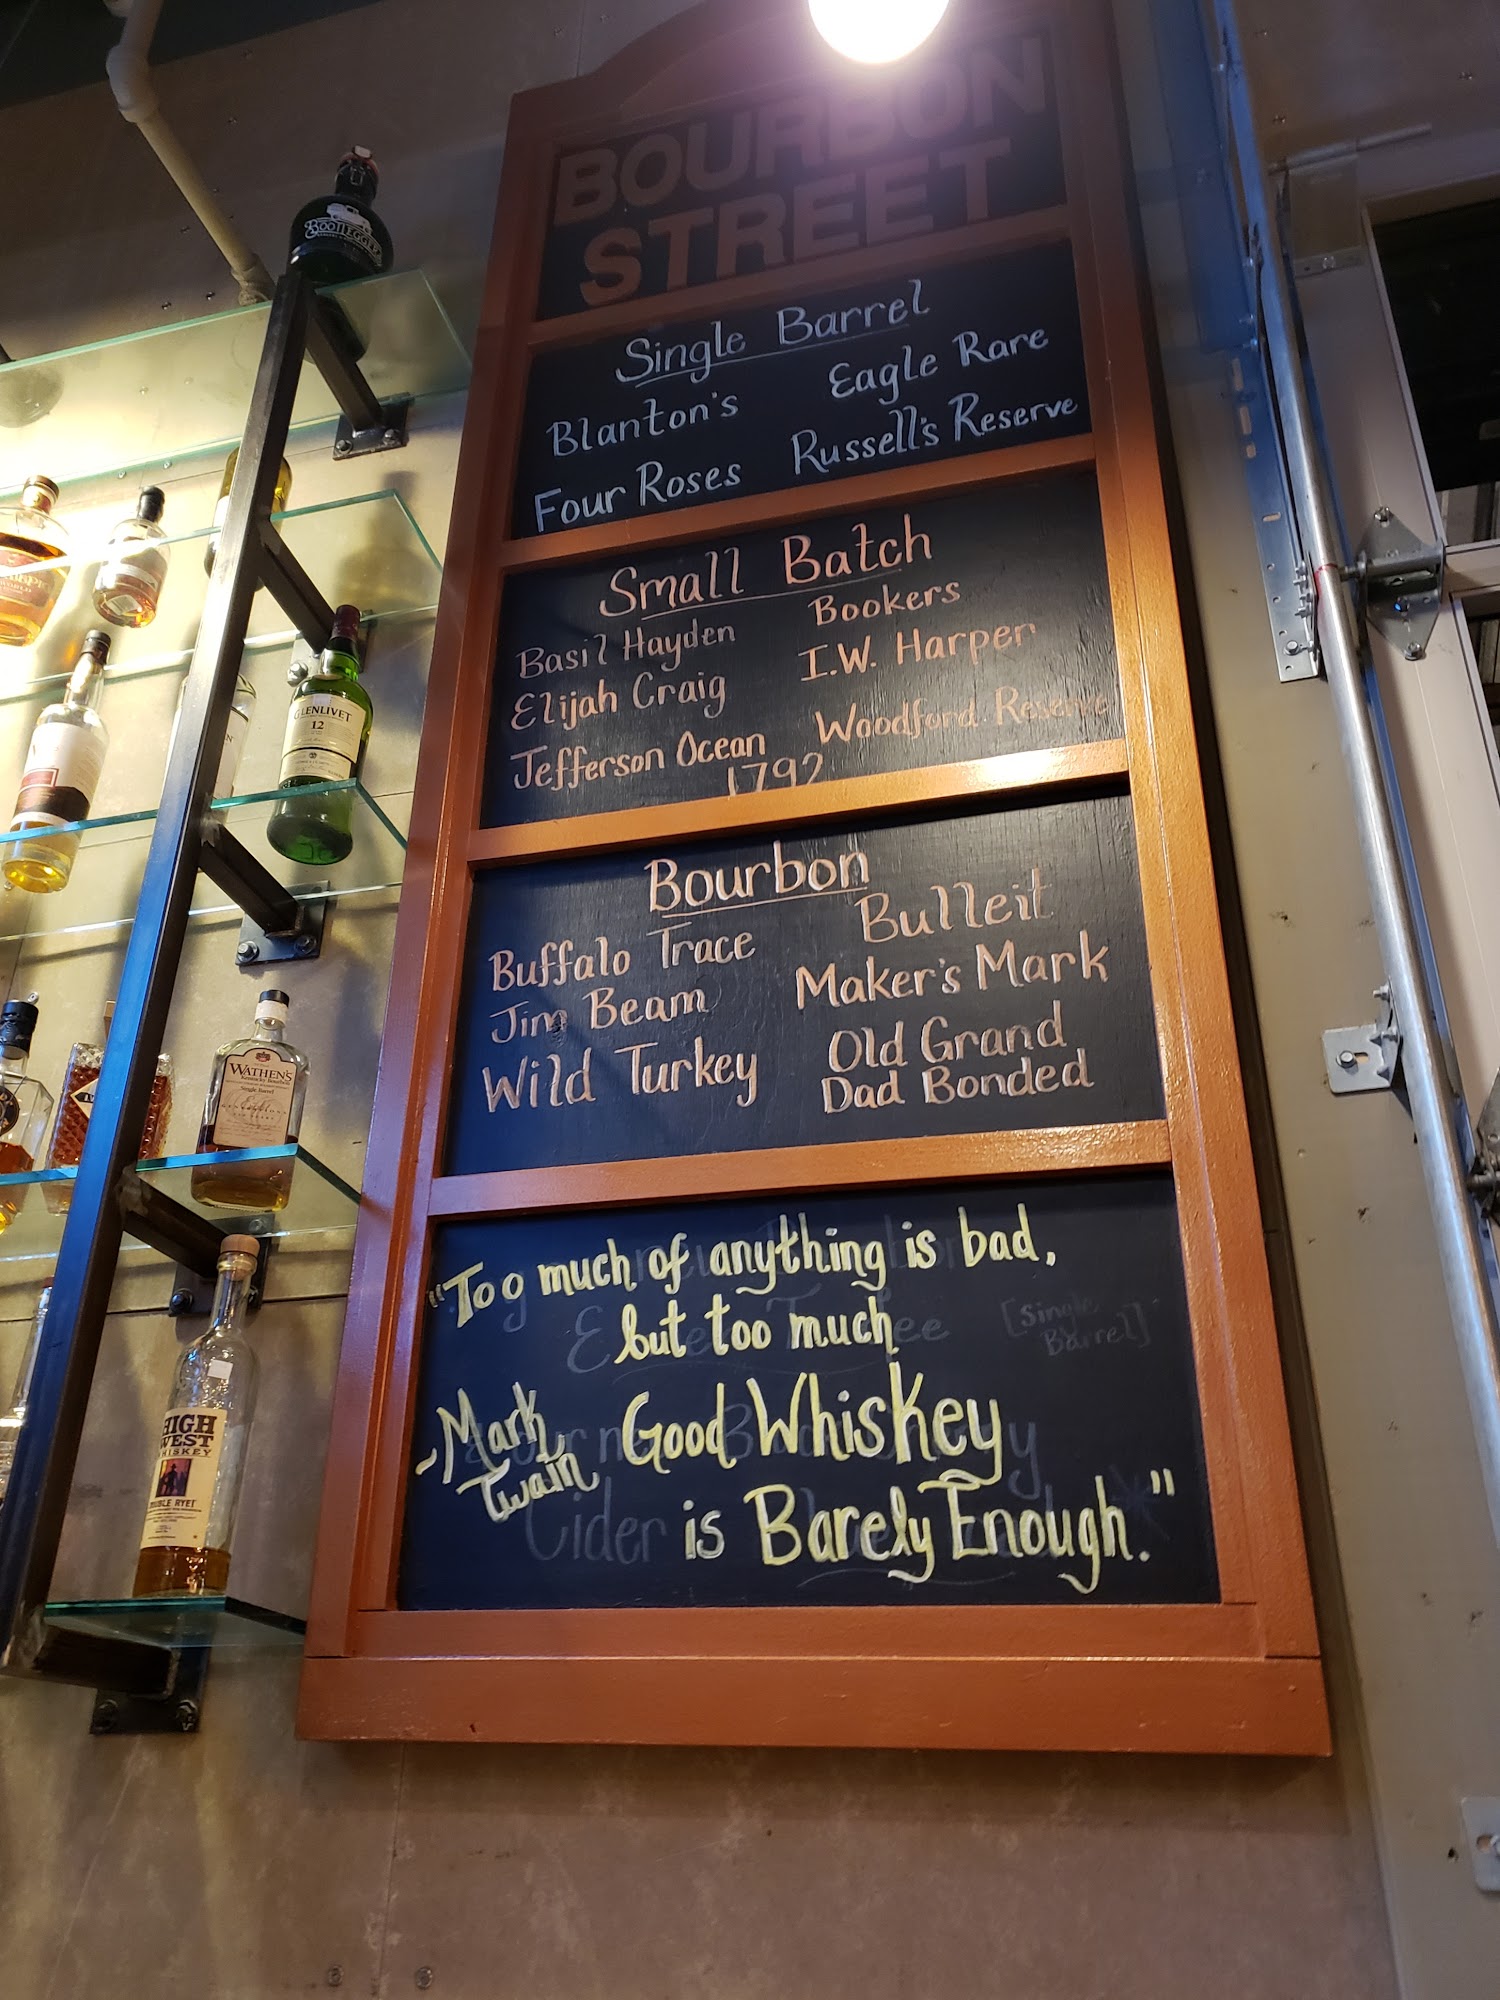 BOURBON
STREET
Single Barrel
Blanton's Eagle Rare
Four Roses Russell's Reserve
Small Batch
Basil Hayden Bookers
Elijah Craig I.W. Harper
Jefferson Ocean Woodford Reserve
1792
Bourbon
Buffalo Trace Bulleit
Jim Beam Maker's Mark
Wild Turkey Old Grand
Dad Bonded
"Too much of anything is bad,
but too much
Good Whiskey
~Mark
Twain
is Barely Enough."
[Single
Barrel]
Cider
BOOTLEGGER
GLENLIVET
12
WATHEN'S
Kentucky Bourbon
Single Barrel
HIGH
WEST
WHISKEY
DOUBLE RYE!